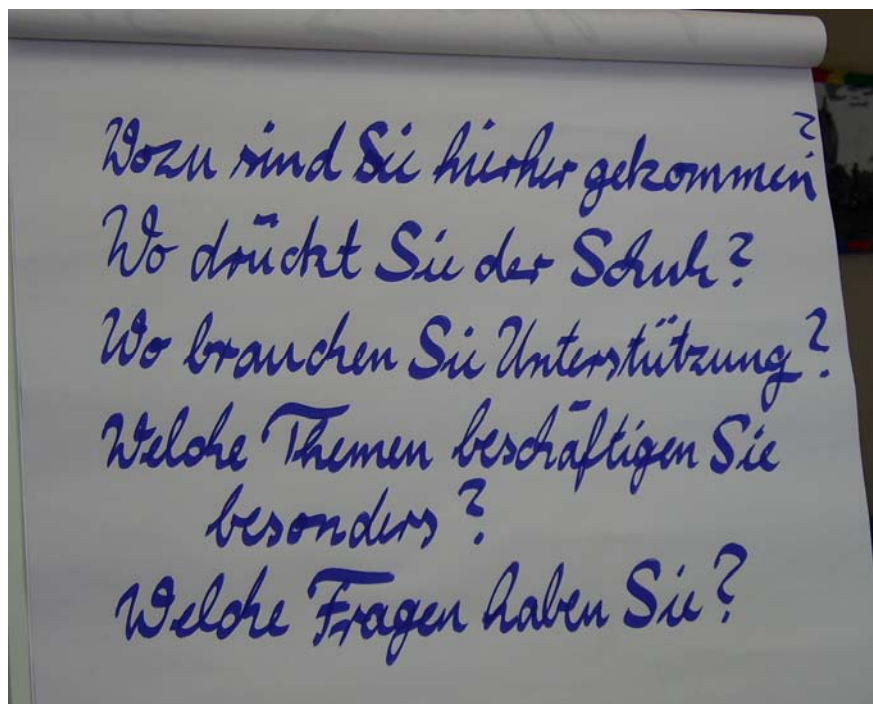 Wozu sind Sie hierher gekommen?
Wo drückt Sie der Schuh?
Wo brauchen Sie Unterstützung?
Welche Themen beschäftigen Sie
besonders?
Welche Fragen haben Sie?